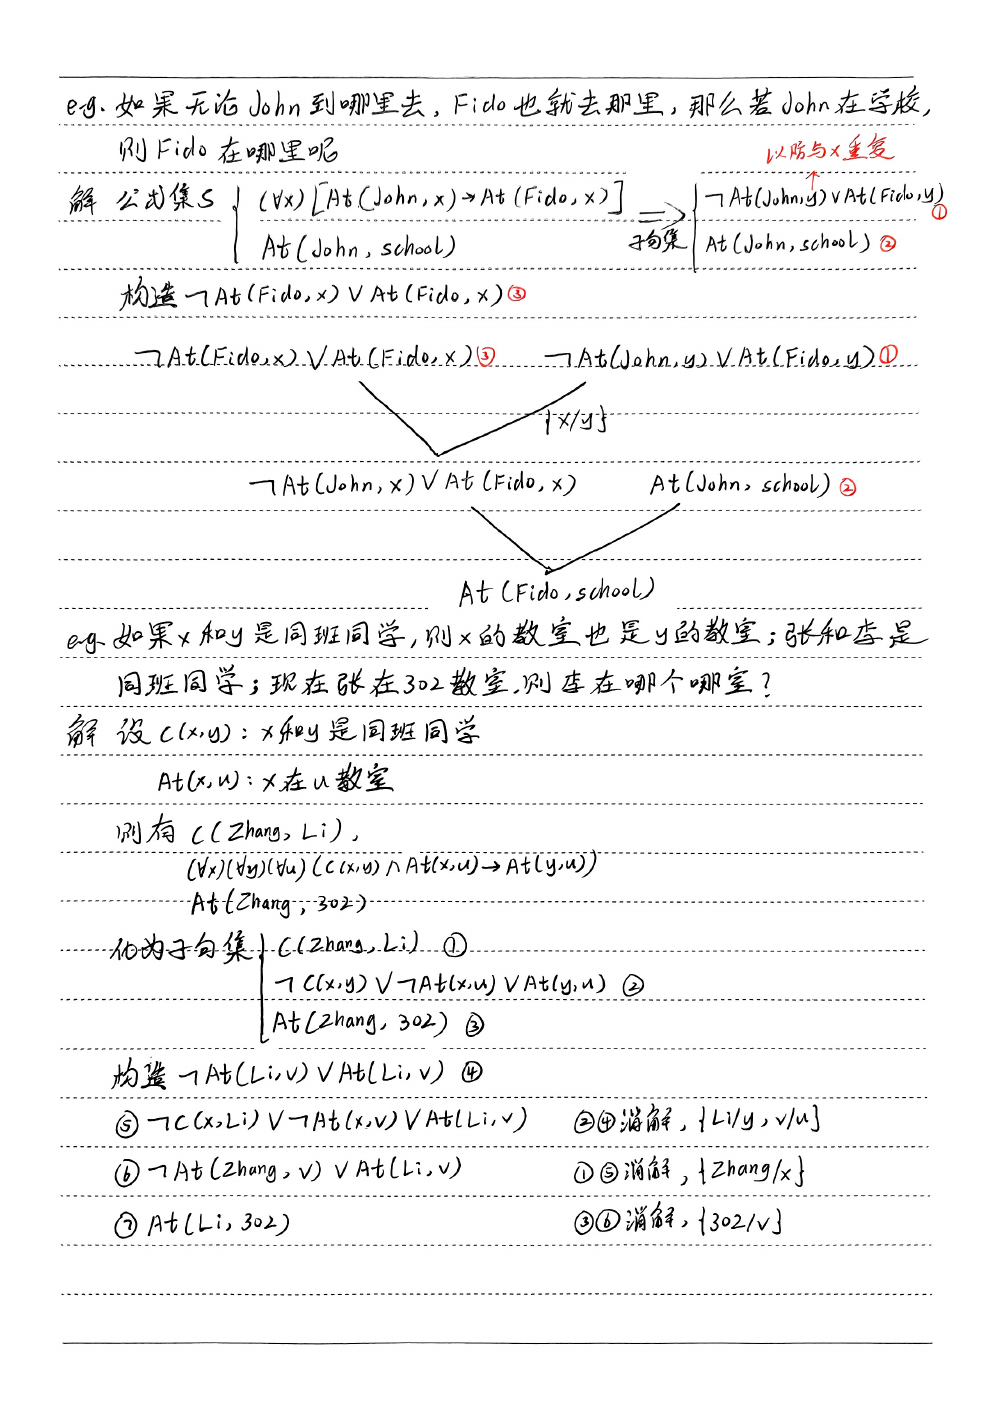 e.g. 如果无论John到哪里去，Fido也就去那里，那么若John在学校，
则Fido在哪里呢
以防与x重复
解 公式集S { (∀x)[At(John,x)→At(Fido,x)] ⇒ 子句集 { ¬At(John,y)∨At(Fido,y) ①
At(John,school) At(John,school) ②
构造¬At(Fido,x)∨At(Fido,x) ③
¬At(Fido,x)∨At(Fido,x) ③ ¬At(John,y)∨At(Fido,y) ①
{x/y}
¬At(John,x)∨At(Fido,x) At(John,school) ②
At(Fido,school)
e.g. 如果x和y是同班同学，则x的教室也是y的教室；张和李是
同班同学；现在张在302教室，则李在哪个哪室？
解 设C(x,y)：x和y是同班同学
At(x,u)：x在u教室
则有 C(Zhang,Li),
(∀x)(∀y)(∀u)(C(x,y)∧At(x,u)→At(y,u))
At(Zhang,302)
化为子句集 { C(Zhang,Li) ①
¬C(x,y)∨¬At(x,u)∨At(y,u) ②
At(Zhang,302) ③
构造¬At(Li,v)∨At(Li,v) ④
⑤ ¬C(x,Li)∨¬At(x,v)∨At(Li,v) ②④消解，{Li/y,v/u}
⑥ ¬At(Zhang,v)∨At(Li,v) ①⑤消解，{Zhang/x}
⑦ At(Li,302) ③⑥消解，{302/v}